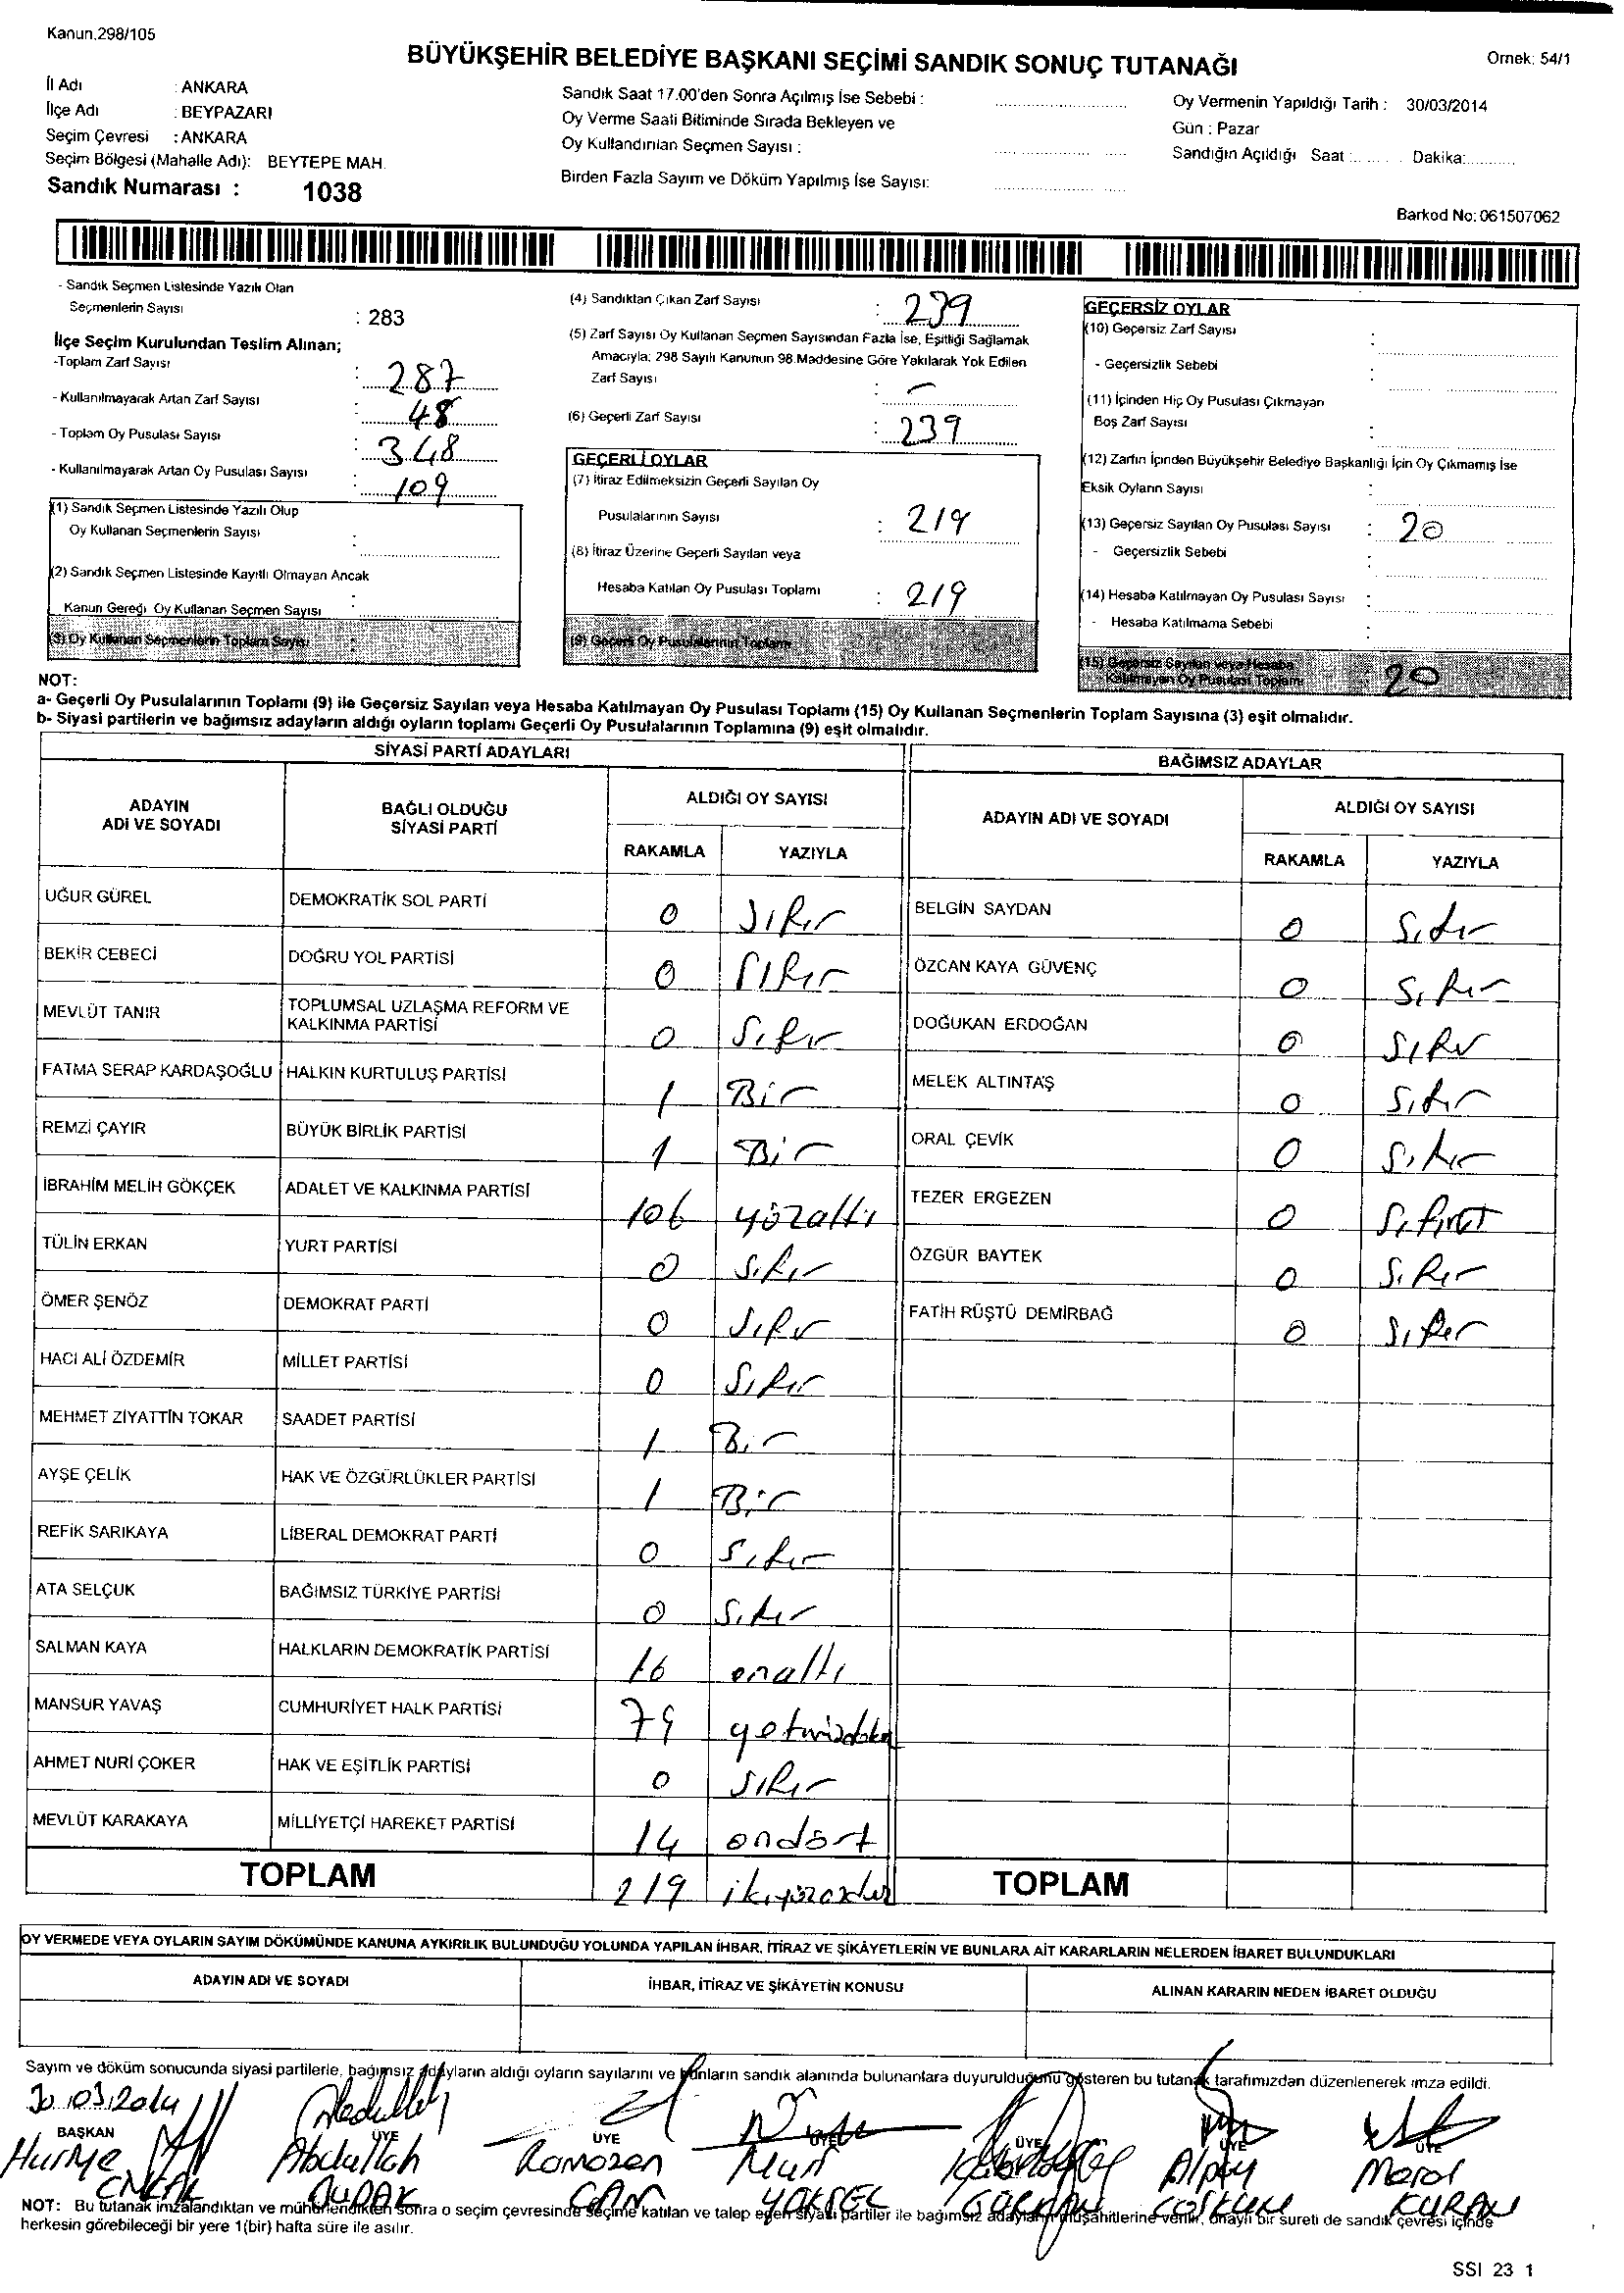 Kanun.298/105
BÜYÜKŞEHİR BELEDİYE BAŞKANI SEÇİMİ SANDIK SONUÇ TUTANAĞI
Ornek: 54/1
İl Adı : ANKARA
İlçe Adı : BEYPAZARI
Seçim Çevresi : ANKARA
Seçim Bölgesi (Mahalle Adı): BEYTEPE MAH.
Sandık Numarası : 1038
Sandık Saat 17.00'den Sonra Açılmış İse Sebebi :
Oy Verme Saati Bitiminde Sırada Bekleyen ve
Oy Kullandırılan Seçmen Sayısı :
Birden Fazla Sayım ve Döküm Yapılmış İse Sayısı:
Oy Vermenin Yapıldığı Tarih : 30/03/2014
Gün : Pazar
Sandığın Açıldığı Saat : Dakika:
Barkod No: 061507062
- Sandık Seçmen Listesinde Yazılı Olan
Seçmenlerin Sayısı : 283
İlçe Seçim Kurulundan Teslim Alınan;
-Toplam Zarf Sayısı : 287
- Kullanılmayarak Artan Zarf Sayısı : 48
- Toplam Oy Pusulası Sayısı : 348
- Kullanılmayarak Artan Oy Pusulası Sayısı : 109
(1) Sandık Seçmen Listesinde Yazılı Olup
Oy Kullanan Seçmenlerin Sayısı :
(2) Sandık Seçmen Listesinde Kayıtlı Olmayan Ancak
Kanun Gereği Oy Kullanan Seçmen Sayısı :
(3) Oy Kullanan Seçmenlerin Toplam Sayısı :
(4) Sandıktan Çıkan Zarf Sayısı : 239
(5) Zarf Sayısı Oy Kullanan Seçmen Sayısından Fazla İse, Eşitliği Sağlamak
Amacıyla; 298 Sayılı Kanunun 98.Maddesine Göre Yakılarak Yok Edilen
Zarf Sayısı : -
(6) Geçerli Zarf Sayısı : 239
GEÇERLİ OYLAR
(7) İtiraz Edilmeksizin Geçerli Sayılan Oy
Pusulalarının Sayısı : 219
(8) İtiraz Üzerine Geçerli Sayılan veya
Hesaba Katılan Oy Pusulası Toplamı : 219
(9) Geçerli Oy Pusulalarının Toplamı
GEÇERSİZ OYLAR
(10) Geçersiz Zarf Sayısı :
- Geçersizlik Sebebi :
(11) İçinden Hiç Oy Pusulası Çıkmayan
Boş Zarf Sayısı :
(12) Zarfın İçinden Büyükşehir Belediye Başkanlığı İçin Oy Çıkmamış İse
Eksik Oyların Sayısı :
(13) Geçersiz Sayılan Oy Pusulası Sayısı : 20
- Geçersizlik Sebebi :
(14) Hesaba Katılmayan Oy Pusulası Sayısı :
- Hesaba Katılmama Sebebi :
(15) Geçersiz Sayılan veya Hesaba
Katılmayan Oy Pusulası Toplamı 20
NOT:
a- Geçerli Oy Pusulalarının Toplamı (9) ile Geçersiz Sayılan veya Hesaba Katılmayan Oy Pusulası Toplamı (15) Oy Kullanan Seçmenlerin Toplam Sayısına (3) eşit olmalıdır.
b- Siyasi partilerin ve bağımsız adayların aldığı oyların toplamı Geçerli Oy Pusulalarının Toplamına (9) eşit olmalıdır.
SİYASİ PARTİ ADAYLARI
ADAYIN ADI VE SOYADI BAĞLI OLDUĞU SİYASİ PARTİ ALDIĞI OY SAYISI
RAKAMLA YAZIYLA
UĞUR GÜREL DEMOKRATİK SOL PARTİ 0 Sıfır
BEKİR CEBECİ DOĞRU YOL PARTİSİ 0 Sıfır
MEVLÜT TANIR TOPLUMSAL UZLAŞMA REFORM VE KALKINMA PARTİSİ 0 Sıfır
FATMA SERAP KARDAŞOĞLU HALKIN KURTULUŞ PARTİSİ 1 Bir
REMZİ ÇAYIR BÜYÜK BİRLİK PARTİSİ 1 Bir
İBRAHİM MELİH GÖKÇEK ADALET VE KALKINMA PARTİSİ 106 yüzaltı
TÜLİN ERKAN YURT PARTİSİ 0 Sıfır
ÖMER ŞENÖZ DEMOKRAT PARTİ 0 Sıfır
HACI ALİ ÖZDEMİR MİLLET PARTİSİ 0 Sıfır
MEHMET ZİYATTİN TOKAR SAADET PARTİSİ 1 Bir
AYŞE ÇELİK HAK VE ÖZGÜRLÜKLER PARTİSİ 1 Bir
REFİK SARIKAYA LİBERAL DEMOKRAT PARTİ 0 Sıfır
ATA SELÇUK BAĞIMSIZ TÜRKİYE PARTİSİ 0 Sıfır
SALMAN KAYA HALKLARIN DEMOKRATİK PARTİSİ 16 onaltı
MANSUR YAVAŞ CUMHURİYET HALK PARTİSİ 79 yetmişdokuz
AHMET NURİ ÇOKER HAK VE EŞİTLİK PARTİSİ 0 Sıfır
MEVLÜT KARAKAYA MİLLİYETÇİ HAREKET PARTİSİ 14 ondört
TOPLAM 219 ikiyüzondokuz
BAĞIMSIZ ADAYLAR
ADAYIN ADI VE SOYADI ALDIĞI OY SAYISI
RAKAMLA YAZIYLA
BELGİN SAYDAN 0 Sıfır
ÖZCAN KAYA GÜVENÇ 0 Sıfır
DOĞUKAN ERDOĞAN 0 Sıfır
MELEK ALTINTAŞ 0 Sıfır
ORAL ÇEVİK 0 Sıfır
TEZER ERGEZEN 0 Sıfır
ÖZGÜR BAYTEK 0 Sıfır
FATİH RÜŞTÜ DEMİRBAĞ 0 Sıfır
TOPLAM
OY VERMEDE VEYA OYLARIN SAYIM DÖKÜMÜNDE KANUNA AYKIRILIK BULUNDUĞU YOLUNDA YAPILAN İHBAR, İTİRAZ VE ŞİKÂYETLERİN VE BUNLARA AİT KARARLARIN NELERDEN İBARET BULUNDUKLARI
ADAYIN ADI VE SOYADI İHBAR, İTİRAZ VE ŞİKÂYETİN KONUSU ALINAN KARARIN NEDEN İBARET OLDUĞU
Sayım ve döküm sonucunda siyasi partilerle, bağımsız adayların aldığı oyların sayılarını ve bunların sandık alanında bulunanlara duyurulduğunu gösteren bu tutanak tarafımızdan düzenlenerek imza edildi.
30.03.2014
BAŞKAN ÜYE ÜYE ÜYE ÜYE ÜYE ÜYE
Abdullah Ramazan Alpay Meral
CAN YÜKSEL COŞKUN KURAN
NOT: Bu tutanak imzalandıktan ve mühürlendikten sonra o seçim çevresinde seçime katılan ve talep eden siyasi partiler ile bağımsız adayların müşahitlerine verilir, onaylı bir sureti de sandık çevresi içinde
herkesin görebileceği bir yere 1(bir) hafta süre ile asılır.
SSI 23 1